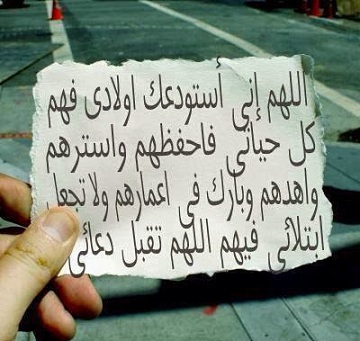 اللهم إني أستودعك اولادى فهم
كل حياتى فاحفظهم واسترهم
واهدهم وبارك فى اعمارهم ولا تجعل
ابتلائى فيهم اللهم تقبل دعائى